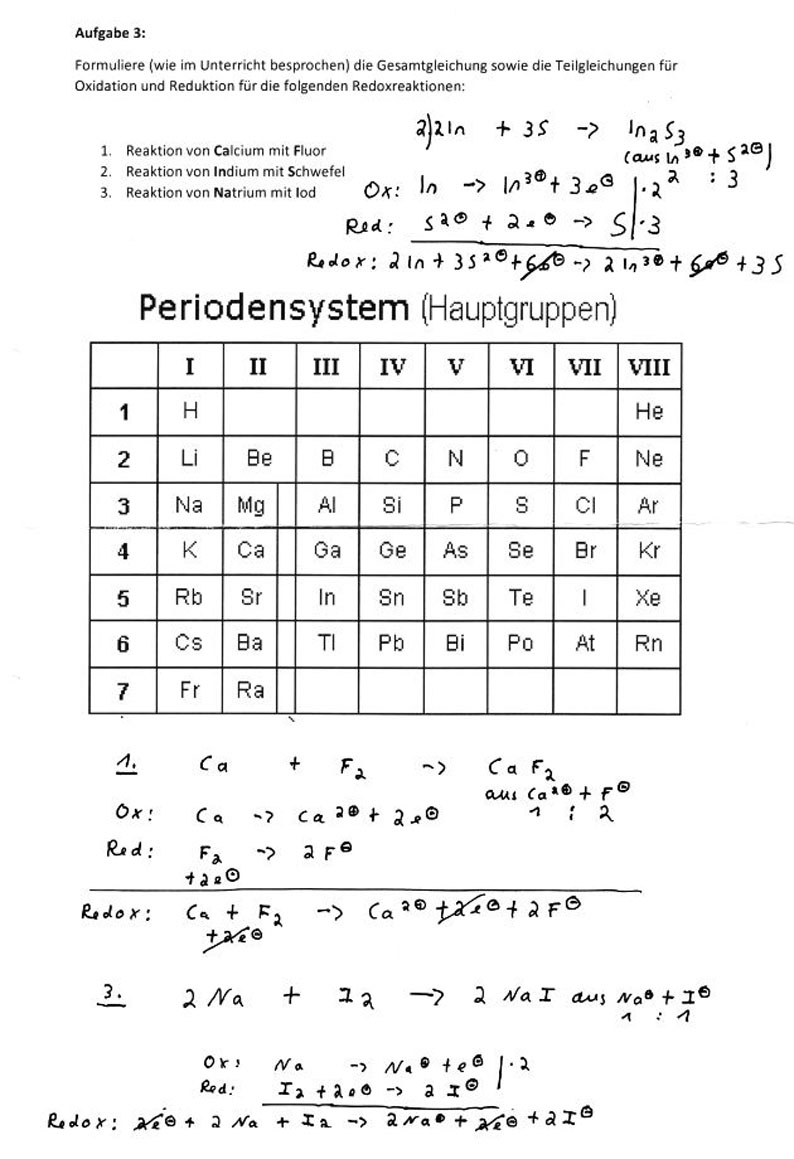 Aufgabe 3:
Formuliere (wie im Unterricht besprochen) die Gesamtgleichung sowie die Teilgleichungen für
Oxidation und Reduktion für die folgenden Redoxreaktionen:
2) 2 In + 3S -> In₂S₃
(aus In³⊕ + S²⊖)
2 : 3
1. Reaktion von Calcium mit Fluor
2. Reaktion von Indium mit Schwefel
3. Reaktion von Natrium mit Iod
Ox: In -> In³⊕ + 3e⊖ | · 2
Red: S²⊖ + 2e⊖ -> S | · 3
Redox: 2 In + 3S²⊖ + 6e⊖ -> 2 In³⊕ + 6e⊖ + 3S
Periodensystem (Hauptgruppen)
I II III IV V VI VII VIII
1 H He
2 Li Be B C N O F Ne
3 Na Mg Al Si P S Cl Ar
4 K Ca Ga Ge As Se Br Kr
5 Rb Sr In Sn Sb Te I Xe
6 Cs Ba Tl Pb Bi Po At Rn
7 Fr Ra
1. Ca + F₂ -> CaF₂
aus Ca²⊕ + F⊖
1 : 2
Ox: Ca -> Ca²⊕ + 2e⊖
Red: F₂ -> 2F⊖
+2e⊖
Redox: Ca + F₂ -> Ca²⊕ + 2e⊖ + 2F⊖
+2e⊖
3. 2 Na + I₂ -> 2 NaI aus Na⊕ + I⊖
1 : 1
Ox: Na -> Na⊕ + e⊖ | · 2
Red: I₂ + 2e⊖ -> 2 I⊖
Redox: 2e⊖ + 2 Na + I₂ -> 2Na⊕ + 2e⊖ + 2I⊖